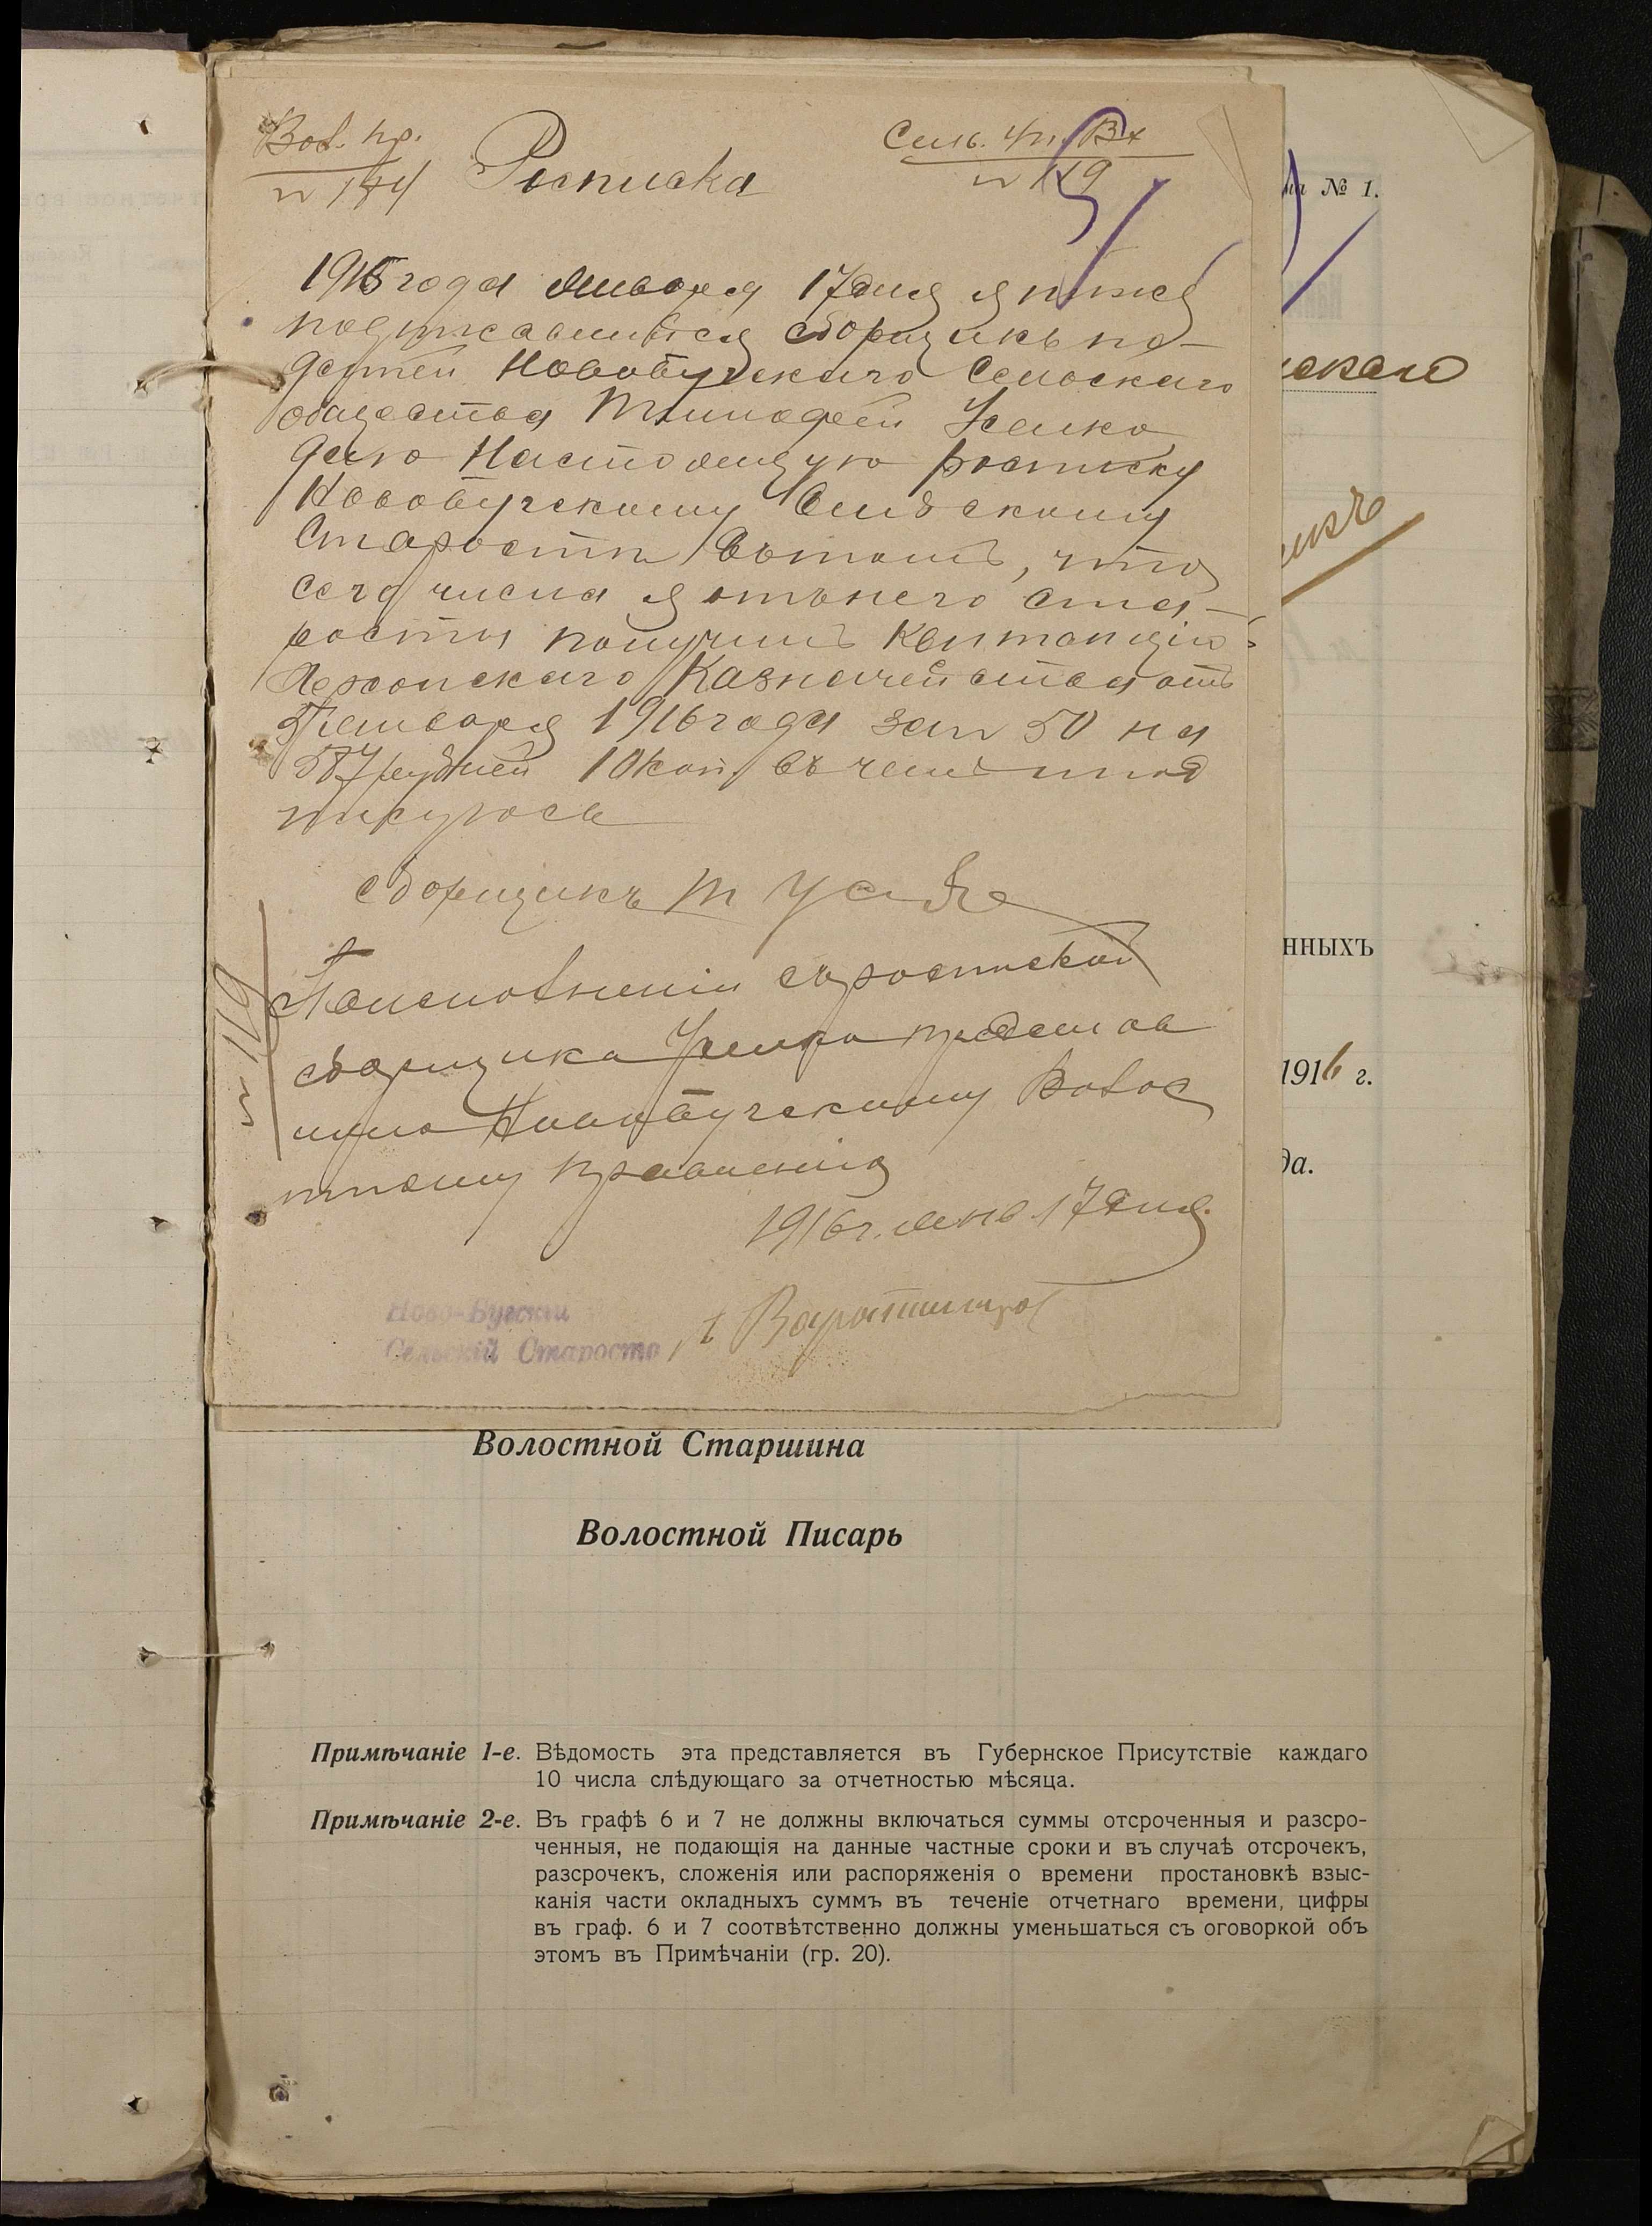 Вол. пр.
№ 184
Сель. Уп. Вх
№ 119
Росписка
1916 года января 17 дня я ниже
подписавшийся сборщикъ по-
датей Новобугскаго Сельскаго
общества Тимофей Усенко
даю настоящую росписку
Новобугскому Сельскому
Старосте въ томъ, что
сего числа я отъ него ста-
росты получилъ квитанцію
Херсонскаго Казначейства отъ
января 1916 года за № 50 на
587 рублей 10 коп. въ чемъ и под
писуюсь
сборщикъ Т Усенко
№ 119
сь роспиской
сборщика Усенка представ
ляю Новобугскому Волос
тному Правленію
1916 г. янв. 17 дня.
Ново-Бугскій
Сельскій Староста
ма № 1.
скаго
нныхъ
1916 г.
да.
Волостной Старшина
Волостной Писарь
Примѣчаніе 1-е. Вѣдомость эта представляется въ Губернское Присутствіе каждаго
10 числа слѣдующаго за отчетностью мѣсяца.
Примѣчаніе 2-е. Въ графѣ 6 и 7 не должны включаться суммы отсроченныя и разсро-
ченныя, не подающія на данные частные сроки и въ случаѣ отсрочекъ,
разсрочекъ, сложенія или распоряженія о времени простановкѣ взыс-
канія части окладныхъ суммъ въ теченіе отчетнаго времени, цифры
въ граф. 6 и 7 соотвѣтственно должны уменьшаться съ оговоркой объ
этомъ въ Примѣчаніи (гр. 20).